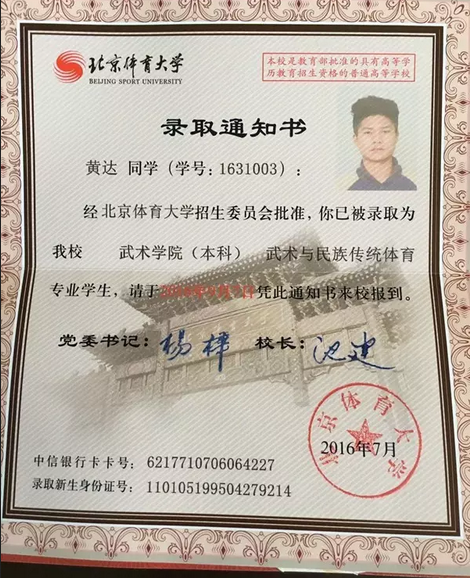 北京体育大学
BEIJING SPORT UNIVERSITY
本校是教育部批准的具有高等学
历教育招生资格的普通高等学校
录取通知书
黄达 同学(学号:1631003):
经北京体育大学招生委员会批准,你已被录取为
我校 武术学院(本科) 武术与民族传统体育
专业学生,请于2016年9月7日凭此通知书来校报到。
党委书记:杨桦 校长:池建
北京体育大学
2016年7月
中信银行卡卡号: 6217710706064227
录取新生身份证号: 110105199504279214